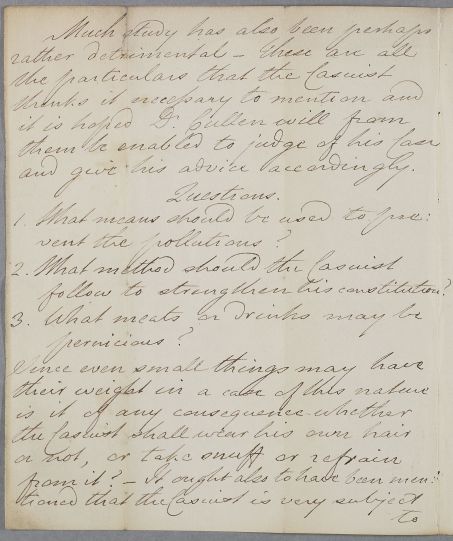 Much study has also been perhaps
rather detrimental – These are all
the particulars that the Casuist
thinks it necessary to mention and
it is hoped Dr. Cullen will from
them be enabled to judge of his Case
and give his advice accordingly.
Questions.
1. What means should be used to pre:
vent the pollutions?
2. What method should the Casuist
follow to strengthen his constitution?
3. What meats or drinks may be
pernicious?
Since even small things may have
their weight in a case of this nature
is it of any consequence whether
the Casuist shall wear his own hair
or not, or take snuff or refrain
from it? – It ought also to have been men:
tioned that the Casuist is very subject
to